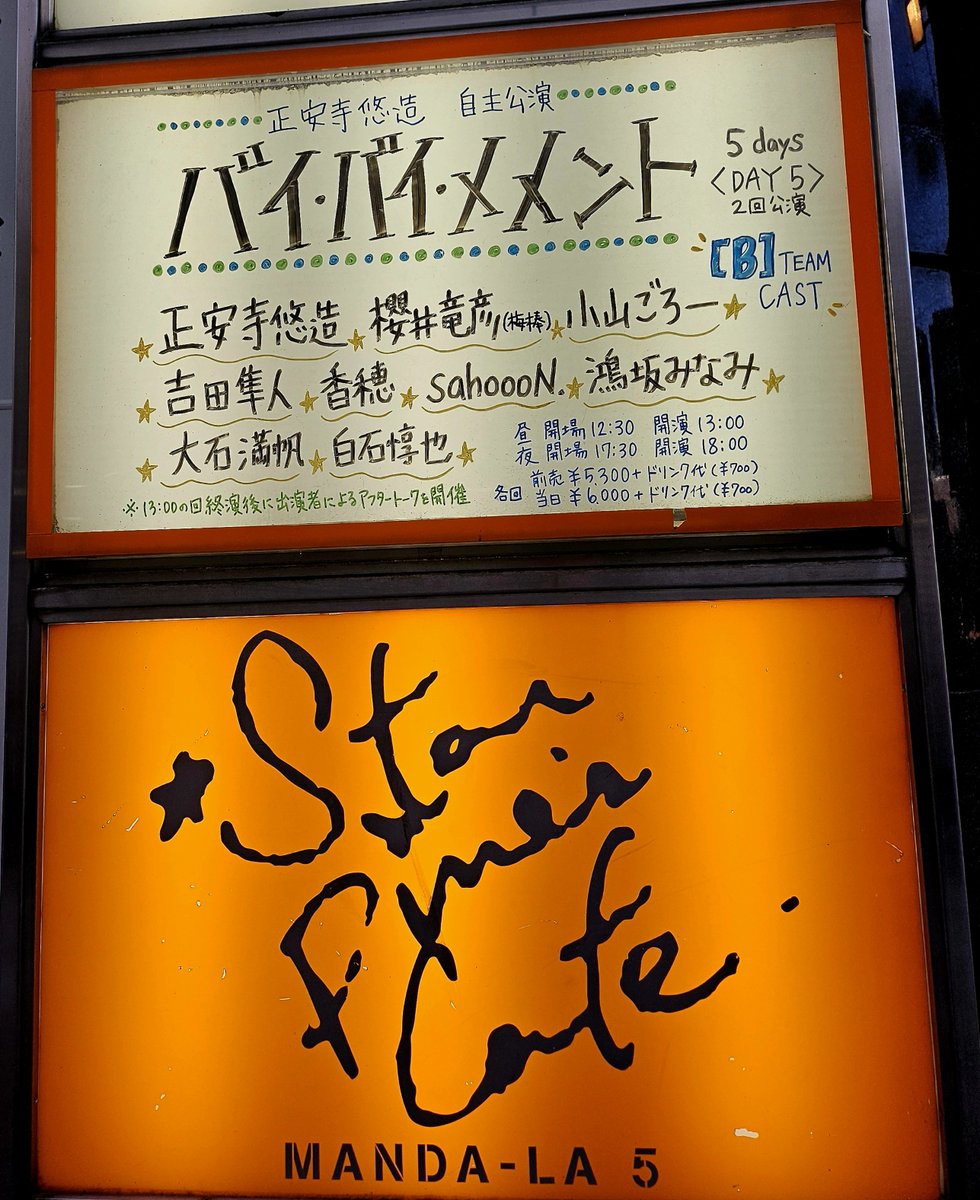 正安寺悠造 自主公演
バイ・バイ・メメント
5 days
〈DAY 5〉
2回公演
[B] TEAM
CAST
正安寺悠造 櫻井竜彦(梅棒) 小山ごろー
吉田隼人 香穂 sahoooN. 鴻坂みなみ
大石満帆 白石惇也
昼 開場 12:30 開演 13:00
夜 開場 17:30 開演 18:00
各回 前売 ¥5,300+ドリンク代(¥700)
当日 ¥6,000+ドリンク代(¥700)
※13:00の回終演後に出演者によるアフタートークを開催
Star
Pine's
Cafe
MANDA-LA 5